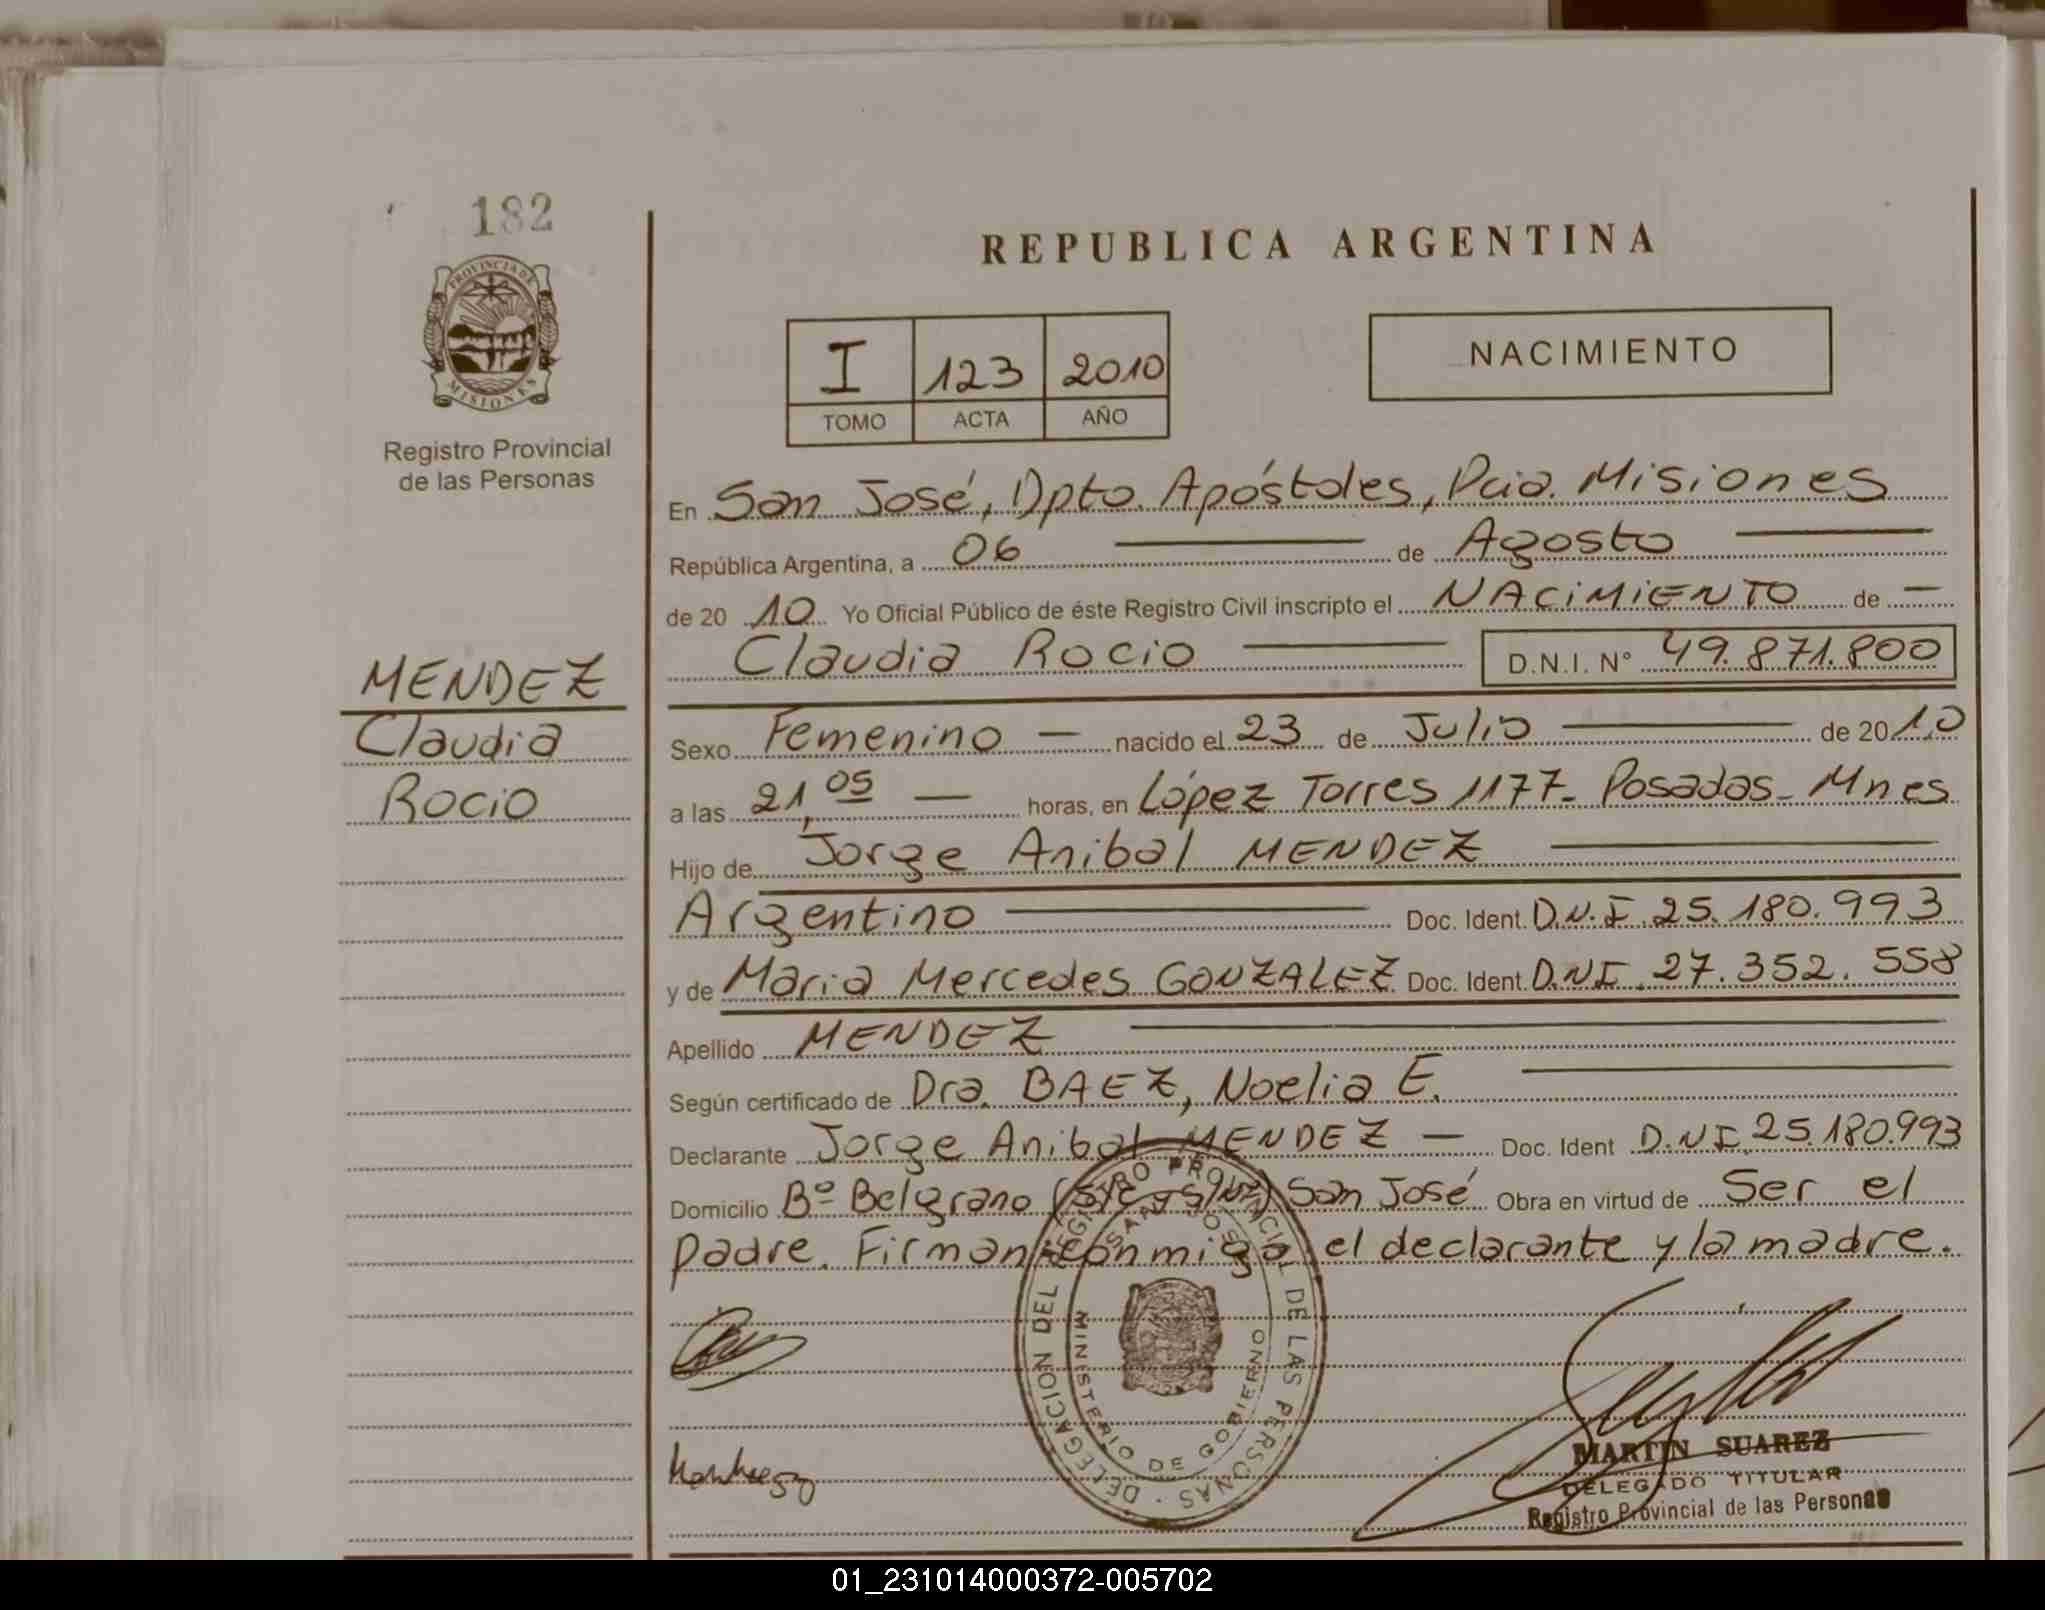 182
PROVINCIA DE
MISIONES
Registro Provincial
de las Personas
MENDEZ
Claudia
Rocio
REPUBLICA ARGENTINA
I 123 2010
TOMO ACTA AÑO
NACIMIENTO
En San José, Dpto. Apóstoles, Pcia. Misiones
República Argentina, a 06 de Agosto
de 20 10 Yo Oficial Público de éste Registro Civil inscripto el NACIMIENTO de —
Claudia Rocio D.N.I. N° 49.871.800
Sexo Femenino — nacido el 23 de Julio de 20 10
a las 21,05 — horas, en López Torres 1177- Posadas- Mnes
Hijo de Jorge Anibal MENDEZ
Argentino Doc. Ident. D.N.I. 25.180.993
y de Maria Mercedes GONZALEZ Doc. Ident. D.N.I. 27.352.558
Apellido MENDEZ
Según certificado de Dra. BAEZ, Noelia E.
Declarante Jorge Anibal MENDEZ — Doc. Ident D.N.I. 25.180.993
Domicilio Bº Belgrano (S/C y S/Nº) San José Obra en virtud de Ser el
padre. Firman conmigo, el declarante y la madre.
DELEGACION DEL REGISTRO PROVINCIAL DE LAS PERSONAS
SAN JOSE
MINISTERIO DE GOBIERNO
MARTIN SUAREZ
DELEGADO TITULAR
Registro Provincial de las Personas
01_231014000372-005702